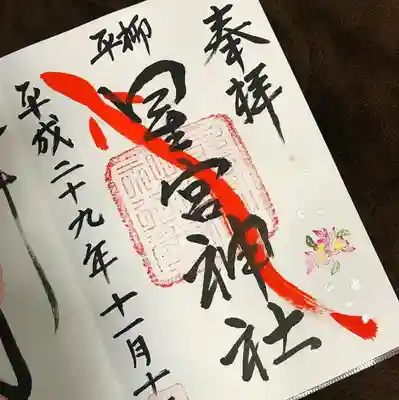 奉拝
平柳
星宮神社
平成二十九年十一月十